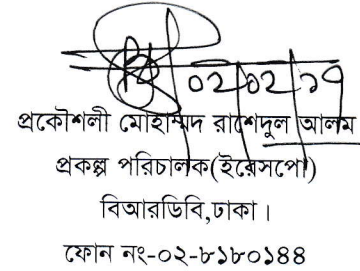 ০২/০২/১৭
প্রকৌশলী মোহাম্মদ রাশেদুল আলম
প্রকল্প পরিচালক(ইরেসপো)
বিআরডিবি,ঢাকা।
ফোন নং-০২-৮১৮০১৪৪